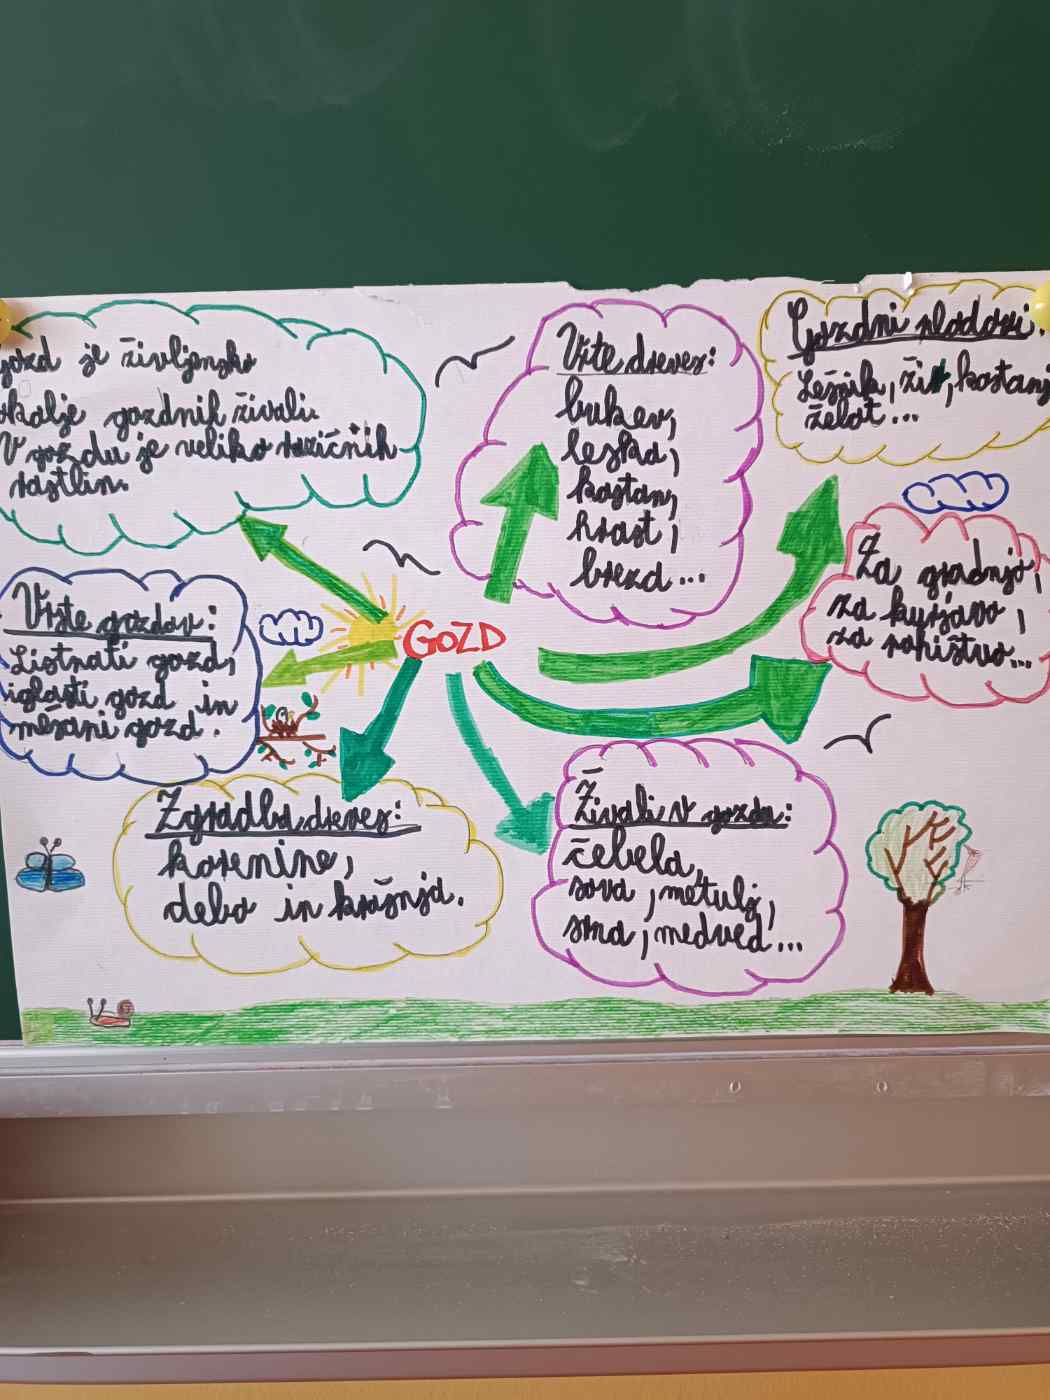 gozd je življensko
okolje gozdnih živali.
V gozdu je veliko različnih
rastlin.
Vrste dreves:
bukev,
leska,
kostanj,
hrast,
breza...
Gozdni plodovi:
Lešnik, žir, kostanj
želod...
Za gradnjo,
za kurjavo,
za pohištvo...
GOZD
Vrste gozdov:
Listnati gozd,
iglasti gozd in
mešani gozd.
Zgradba dreves:
korenine,
deblo in krošnja.
Živali v gozdu:
čebela,
sova, metulj,
srna, medved...